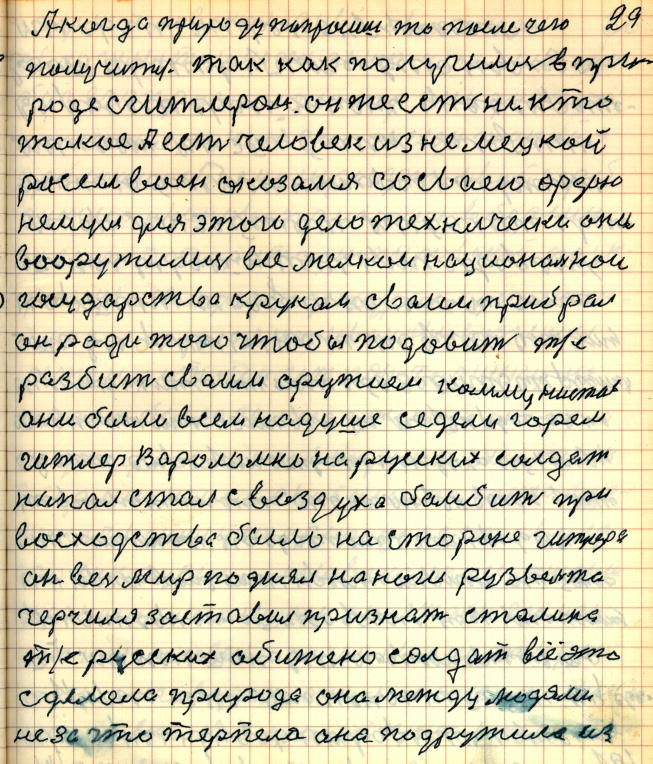 А когда природу попросиш то после чего 29
получити. так как получилось в при-
роде с гитлером. он же есть ни кто
такое А есть человек из немецкой
рысы воен оказамя со сваею орзию
немцы для этого дело технически они
вооружились все мелкой национамной
государства крукам сваим прибрал
он ради того чтобы подовить т/е
разбить сваим аружием коммунистав
ани были всем надуше седели горем
гитлер Вароломно на русских солдат
напал стал с воздуха бамбить при
восходства было на стороне гитлера
он весь мир поднял на ноги рузвельта
черчиля заставил признать сталина
т/е русских абижено солдат всё это
сделола природа она между людями
не за что терпела ана подружила из